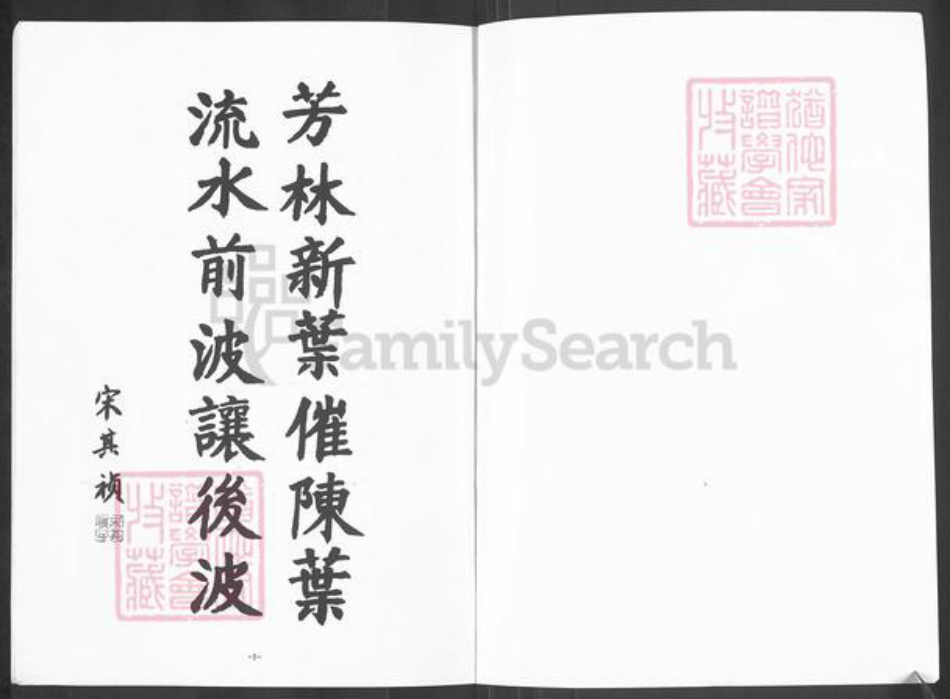 芳林新葉催陳葉
流水前波讓後波
宋其禎
-1-
FamilySearch